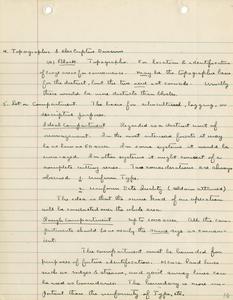 4. Topographic & descriptive
(a) Block. Topographic. For location & identification
of land area for convenience. May be the topographic basis
for the district, but the two are not usually
there would be more districts than blocks.
5. Lot or Compartment. The basis for silvicultural, logging, or
descriptive purposes.
Ideal Compartment Regarded as a distinct unit of
management. In the most intensive forests it may
be as low as 60 acres. In some systems it would be
In other systems it might consist of a
complete cutting series. Two considerations are always
observed 1. Uniform Type.
2. Uniform Site Quality (seldom attained)
The idea is that the same kind of operation
will be conducted over the whole area.
Rough Compartment up to 1000 acres. All the
compartments should have nearly the same
The compartment must be bounded for
purposes of future identification. Natural land lines
such as ridges & streams, and good survey lines can
be used as boundaries. The boundary is more
than the uniformity of type, etc.